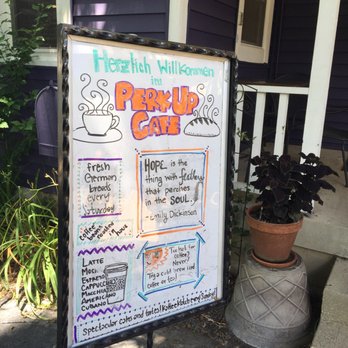 Herzlich Willkommen
im
PERK UP
CAFE
fresh
German
breads
every
Saturday
HOPE is the
thing with feathers
that perches
in the
SOUL.
- Emily Dickinson
coffee
beans
roasted in
house
LATTE
MOCHA
ESPRESSO
CAPPUCCINO
MACCHIATO
AMERICANO
CUBANO
Too hot for
coffee?
Never!
Try a cold brew iced
coffee or tea!
Spectacular cakes and tortes! Kaffee & Klatsch every Sunday!